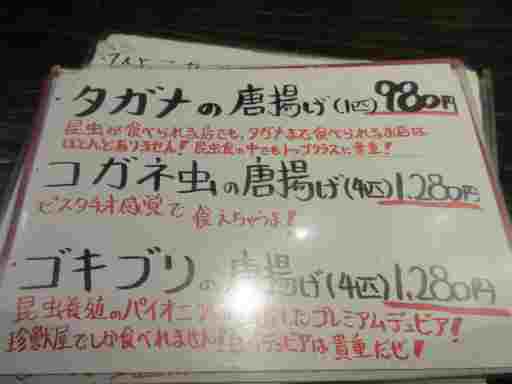 ・タガメの唐揚げ(1匹)980円
昆虫が食べられる店でも、タガメまで食べられるお店は
ほとんどありません!昆虫食の中でもトップクラスに貴重!
・コガネ虫の唐揚げ(4匹)1,280円
ピスタチオ感覚で食えちゃうよ!
・ゴキブリの唐揚げ(4匹)1,280円
昆虫養殖のパイオニア したプレミアムデュビア!
珍獣屋でしか食べれません! デュビアは貴重だぜ!